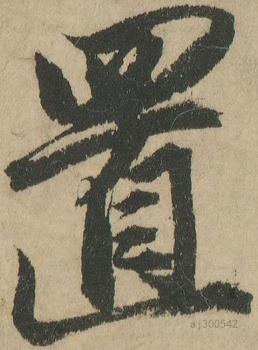 置
aj300542